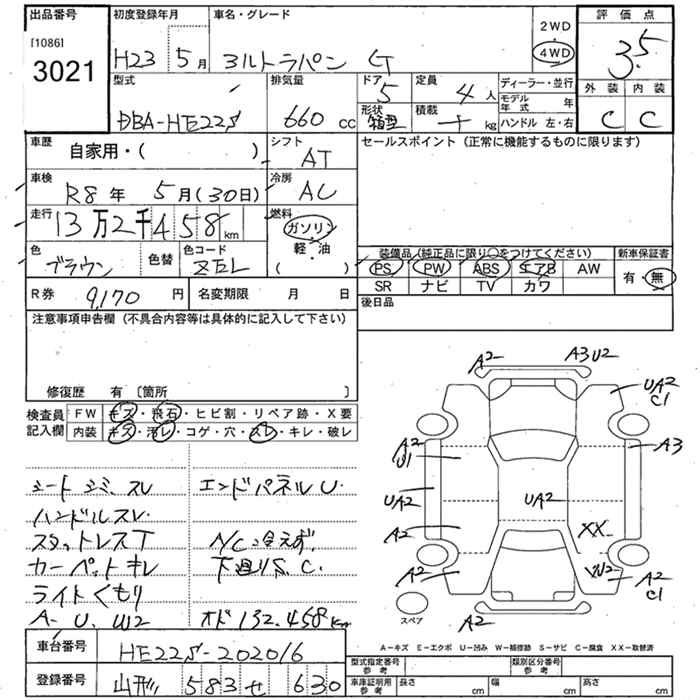 出品番号
[1086]
3021
初度登録年月
H23 5月
車名・グレード
ヨルトラパン G
2WD
4WD
評価点
3.5
外装 内装
C C
型式
DBA-HE22S
排気量
660 cc
ドア
5
形状
箱型
定員
4 人
積載
kg
ディーラー・並行
モデル年式 年
ハンドル 左・右
車歴
自家用・( )
シフト
AT
セールスポイント (正常に機能するものに限ります)
車検
R8年 5月(30日)
冷房
AC
走行
13万2千458km
燃料
ガソリン
軽・油
( )
色
ブラウン
色替
色コード
ZEL
装備品 (純正品に限り○をつけてください)
PS PW ABS エアB AW
SR ナビ TV カワ
新車保証書
有・無
R券 9,170 円
名変期限 月 日
後日品
注意事項申告欄 (不具合内容等は具体的に記入して下さい)
修復歴 有 [箇所 ]
検査員記入欄
FW キズ・飛石・ヒビ割・リペア跡・X要
内装 キズ・汚レ・コゲ・穴・スレ・キレ・破レ
シート シミ、スレ
ハンドルスレ
スタットレスT
カーペットキレ
ライトくもり
A-U.W2
エンドパネルU.
A/C冷えず
下廻りS.C.
オド132.458km
A2
A3U2
UA2
C1
A2
U1
A3
UA2
UA2
A2
XX
A2
A2
C1
スペア
A2
A-キズ E-エクボ U-凹み W-補修跡 S-サビ C-腐食 XX-取替済
車台番号
HE22S-202016
登録番号
山形 583 せ 630
型式指定番号
参考
類別区分番号
参考
車庫証明用
参考
長さ cm
幅 cm
高さ cm